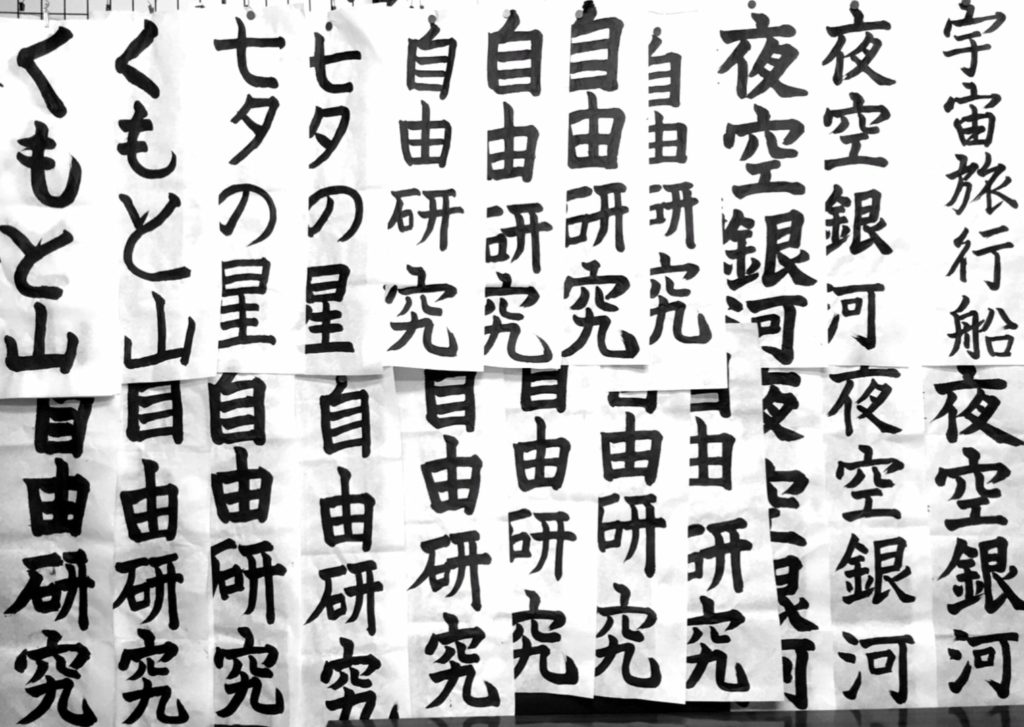 宇宙旅行船
夜空銀河
夜空銀河
自由研究
自由研究
自由研究
自由研究
七夕の星
七夕の星
くもと山
くもと山
夜空銀河
夜空銀河
夜空銀河
自由研究
自由研究
自由研究
自由研究
自由研究
自由研究
自由研究
自由研究